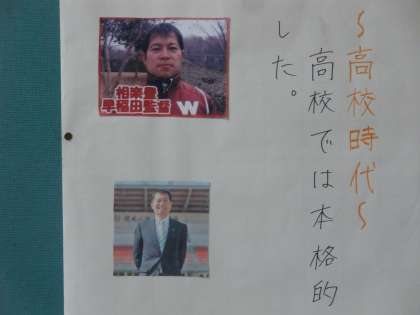 ～高校時代～
高校では本格的
した。
相楽豊
早稲田監督
W